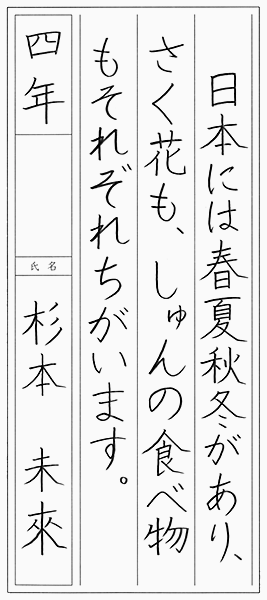 日本には春夏秋冬があり、
さく花も、しゅんの食べ物
もそれぞれちがいます。
四年
氏名
杉本 未來